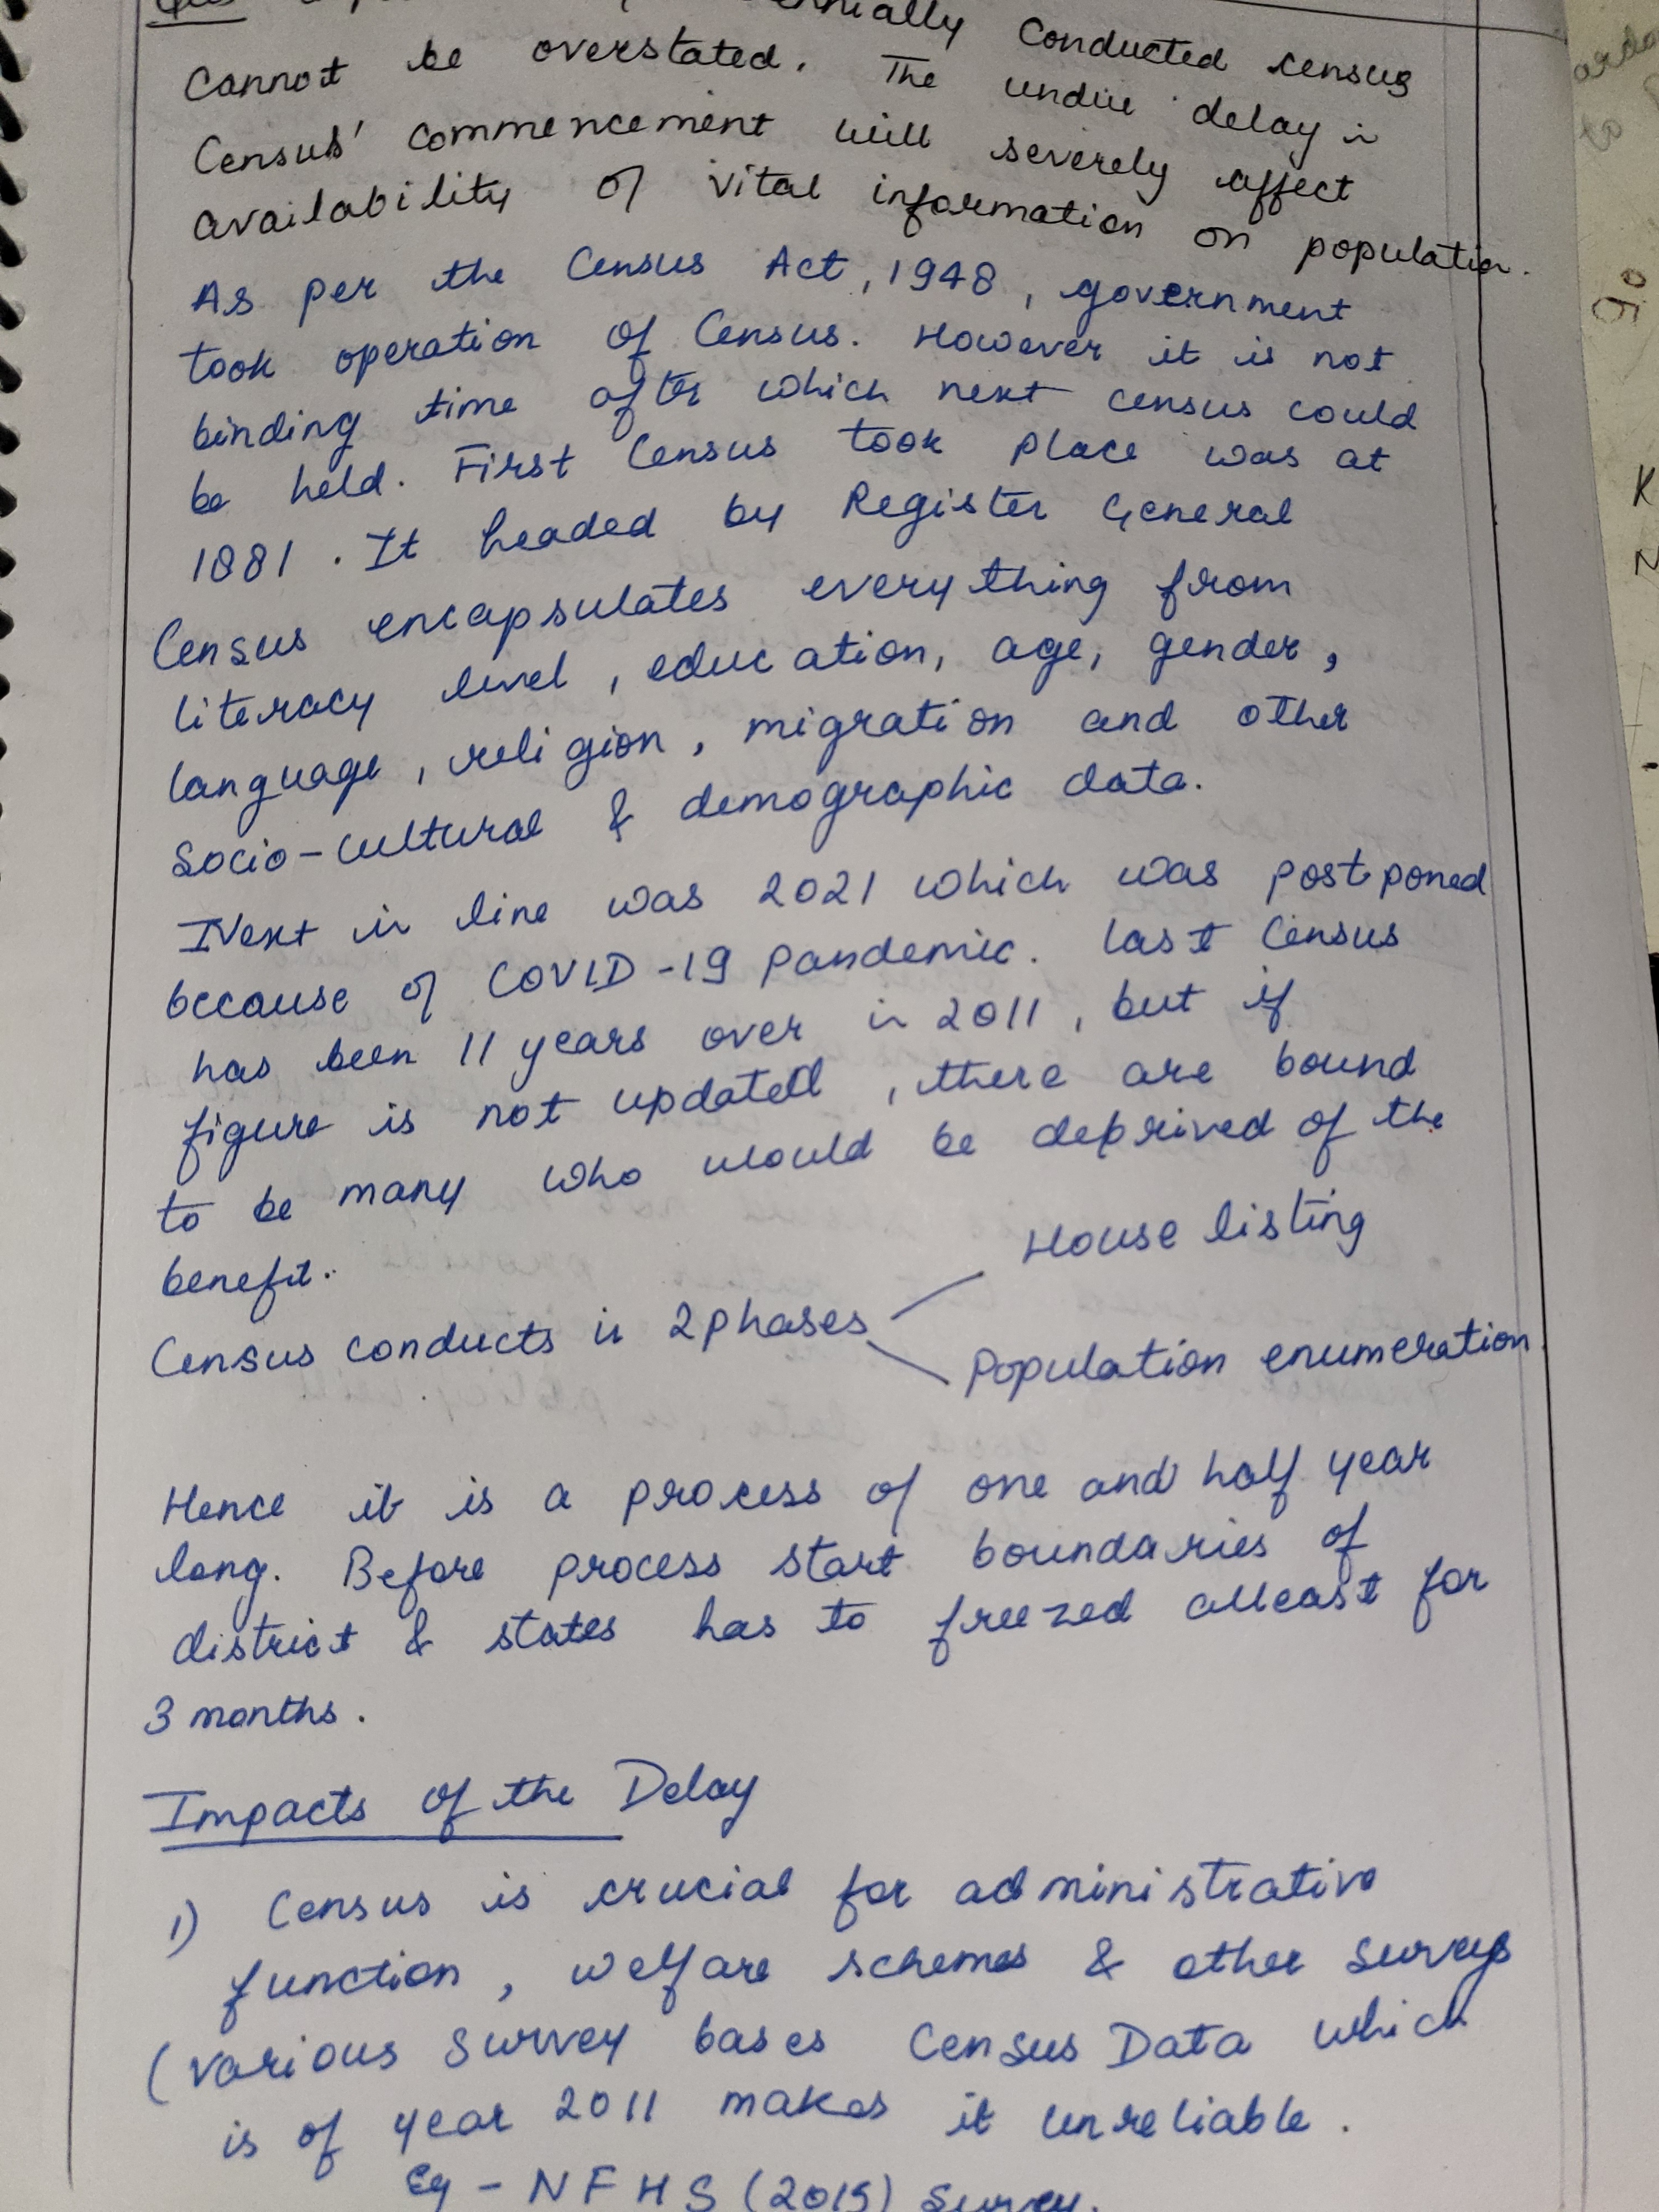 conducted census
cannot be overstated. The undue delay in
Census' commencement will severely affect
availability of vital information on population.
As per the Census Act, 1948, government
took operation of Census. However it is not
binding time after which next census could
be held. First Census took place was at
1881. It headed by Register General
Census encapsulates everything from
literacy level, education, age, gender,
language, religion, migration and other
socio-cultural & demographic data.
Next in line was 2021 which was postponed
because of COVID-19 pandemic. Last Census
has been 11 years over in 2011, but if
figure is not updated, there are bound
to be many who would be deprived of the
benefit.
House listing
Census conducts in 2 phases
Population enumeration.
Hence it is a process of one and half year
long. Before process start boundaries of
district & states has to freezed atleast for
3 months.
Impacts of the Delay
1) Census is crucial for administrative
function, welfare schemes & other surveys
(various survey bases Census Data which
is of year 2011 makes it unreliable.
Eg - NFHS (2015) Survey.